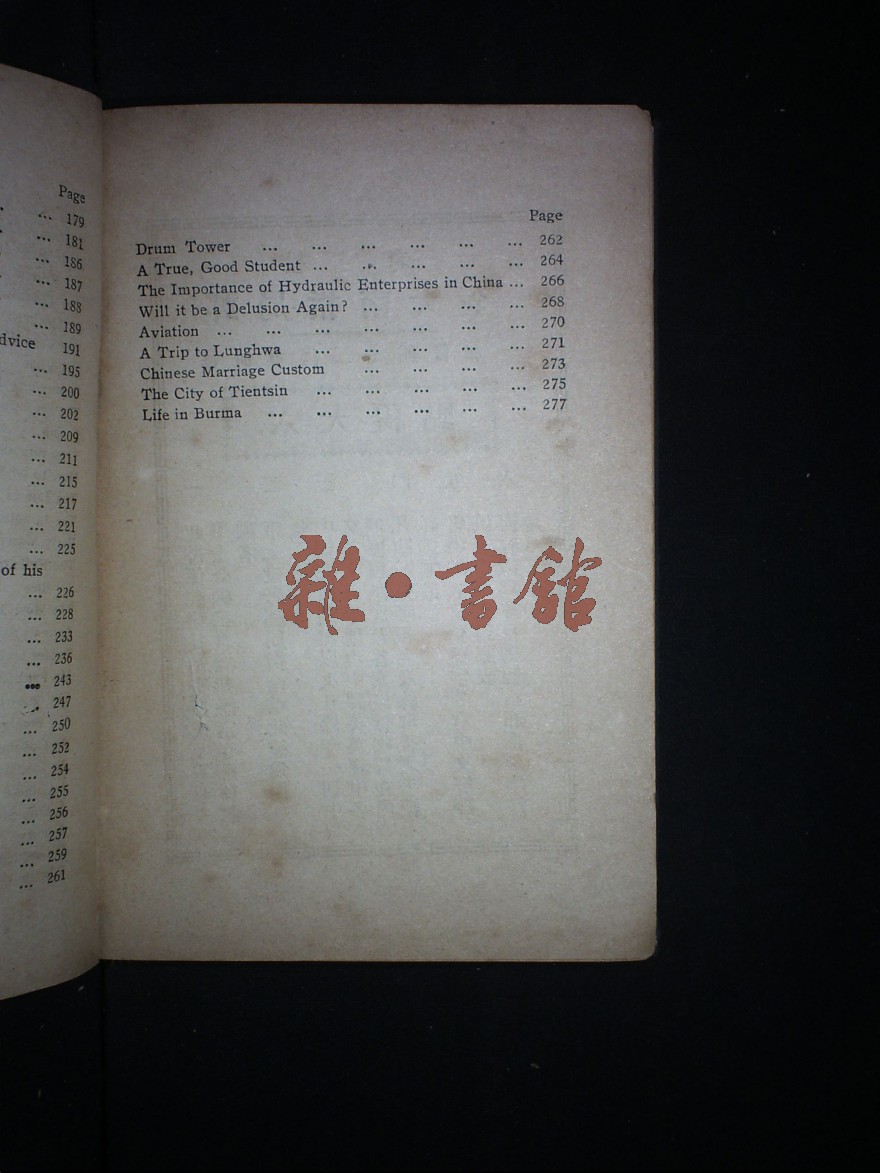 Page
... 179
... 181
... 186
... 187
... 188
... 189
dvice 191
... 195
... 200
... 202
... 209
... 211
... 215
... 217
... 221
... 225
of his
... 226
... 228
... 233
... 236
... 243
... 247
... 250
... 252
... 254
... 255
... 256
... 257
... 259
... 261
Page
Drum Tower ... ... ... ... ... ... 262
A True, Good Student ... ... ... ... ... 264
The Importance of Hydraulic Enterprises in China ... 266
Will it be a Delusion Again? ... ... ... ... 268
Aviation ... ... ... ... ... ... ... 270
A Trip to Lunghwa ... ... ... ... ... 271
Chinese Marriage Custom ... ... ... ... 273
The City of Tientsin ... ... ... ... ... 275
Life in Burma ... ... ... ... ... ... 277
雜·書館